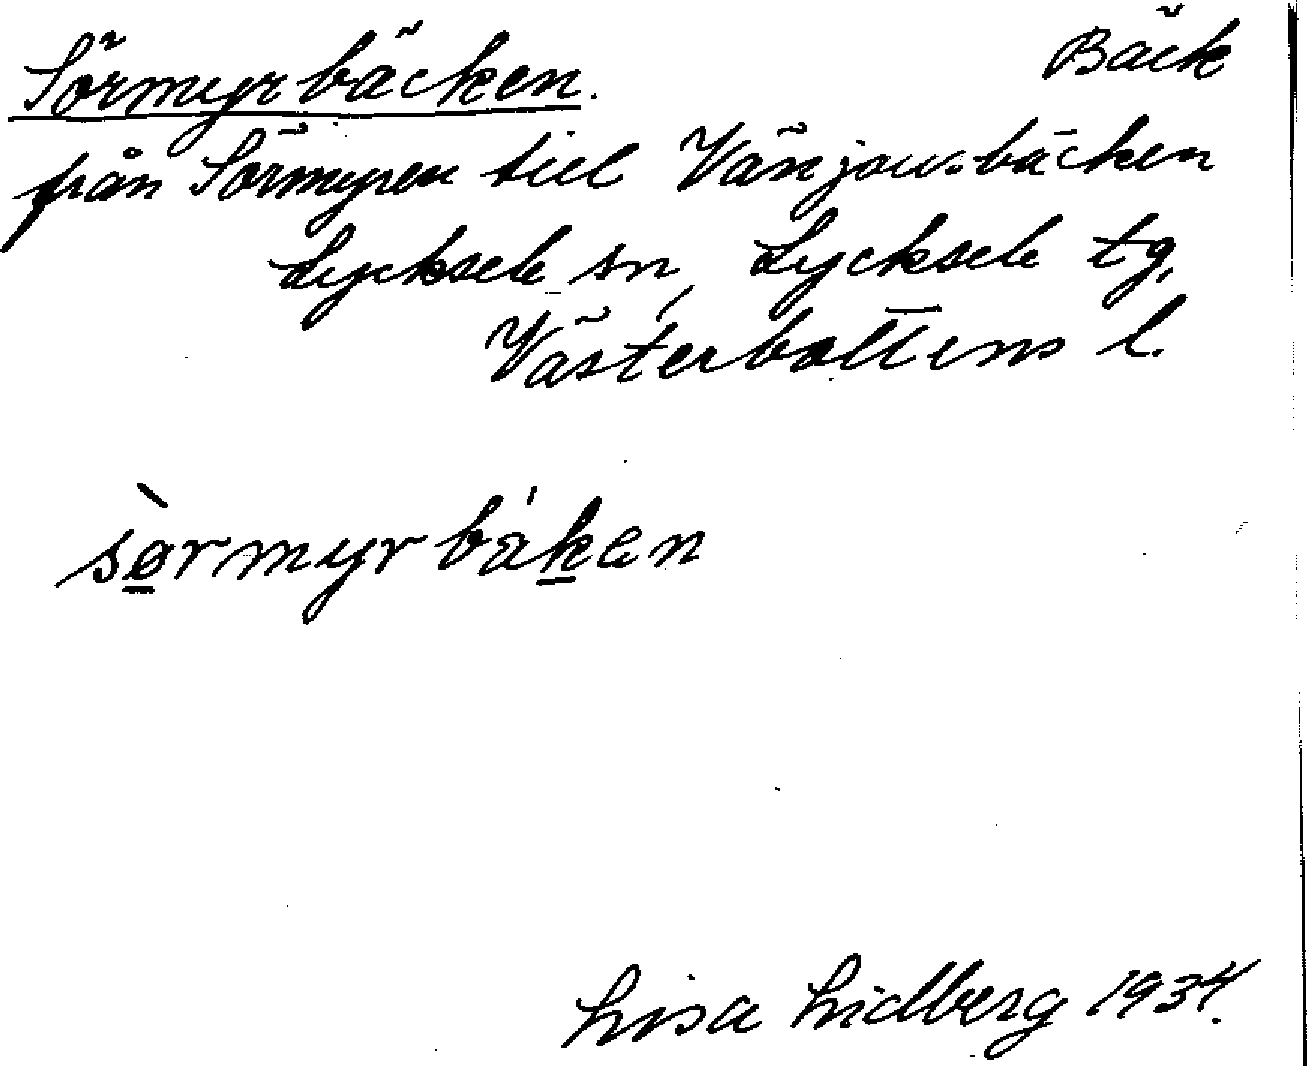 Sörmyrbäcken. Bäck
från Sörmyren till Vänjausbäcken
Lycksele sn, Lycksele tg,
Västerbottens l.
sørmyrbäken
Lisa Lidberg 1934.